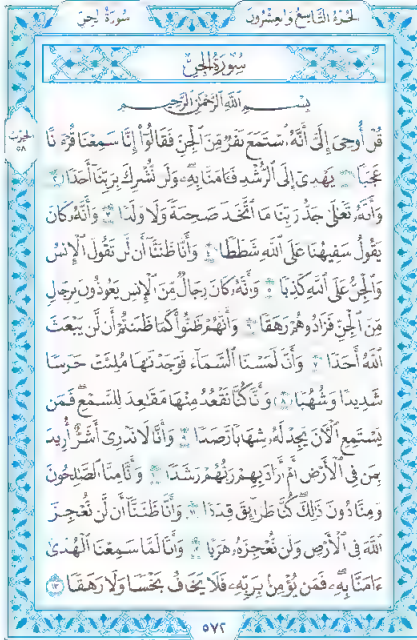 سُورَةُ الجِنّ
الجُزْءُ التَّاسِعُ وَالعِشْرُونَ
سُورَةُ الجِنِّ
بِسْمِ اللَّهِ الرَّحْمَٰنِ الرَّحِيمِ
الحِزْبُ
٥٨
قُلْ أُوحِيَ إِلَيَّ أَنَّهُ ٱسْتَمَعَ نَفَرٌ مِّنَ ٱلْجِنِّ فَقَالُوٓا۟ إِنَّا سَمِعْنَا قُرْءَانًا
عَجَبًا ١ يَهْدِىٓ إِلَى ٱلرُّشْدِ فَـَٔامَنَّا بِهِۦ وَلَن نُّشْرِكَ بِرَبِّنَآ أَحَدًا ٢
وَأَنَّهُۥ تَعَٰلَىٰ جَدُّ رَبِّنَا مَا ٱتَّخَذَ صَٰحِبَةً وَلَا وَلَدًا ٣ وَأَنَّهُۥ كَانَ
يَقُولُ سَفِيهُنَا عَلَى ٱللَّهِ شَطَطًا ٤ وَأَنَّا ظَنَنَّآ أَن لَّن تَقُولَ ٱلْإِنسُ
وَٱلْجِنُّ عَلَى ٱللَّهِ كَذِبًا ٥ وَأَنَّهُۥ كَانَ رِجَالٌ مِّنَ ٱلْإِنسِ يَعُوذُونَ بِرِجَالٍ
مِّنَ ٱلْجِنِّ فَزَادُوهُمْ رَهَقًا ٦ وَأَنَّهُمْ ظَنُّوا۟ كَمَا ظَنَنتُمْ أَن لَّن يَبْعَثَ
ٱللَّهُ أَحَدًا ٧ وَأَنَّا لَمَسْنَا ٱلسَّمَآءَ فَوَجَدْنَٰهَا مُلِئَتْ حَرَسًا
شَدِيدًا وَشُهُبًا ٨ وَأَنَّا كُنَّا نَقْعُدُ مِنْهَا مَقَٰعِدَ لِلسَّمْعِ فَمَن
يَسْتَمِعِ ٱلْـَٔانَ يَجِدْ لَهُۥ شِهَابًا رَّصَدًا ٩ وَأَنَّا لَا نَدْرِىٓ أَشَرٌّ أُرِيدَ
بِمَن فِى ٱلْأَرْضِ أَمْ أَرَادَ بِهِمْ رَبُّهُمْ رَشَدًا ١٠ وَأَنَّا مِنَّا ٱلصَّٰلِحُونَ
وَمِنَّا دُونَ ذَٰلِكَ كُنَّا طَرَآئِقَ قِدَدًا ١١ وَأَنَّا ظَنَنَّآ أَن لَّن نُّعْجِزَ
ٱللَّهَ فِى ٱلْأَرْضِ وَلَن نُّعْجِزَهُۥ هَرَبًا ١٢ وَأَنَّا لَمَّا سَمِعْنَا ٱلْهُدَىٰٓ
ءَامَنَّا بِهِۦ فَمَن يُؤْمِنۢ بِرَبِّهِۦ فَلَا يَخَافُ بَخْسًا وَلَا رَهَقًا ١٣
٥٧٢